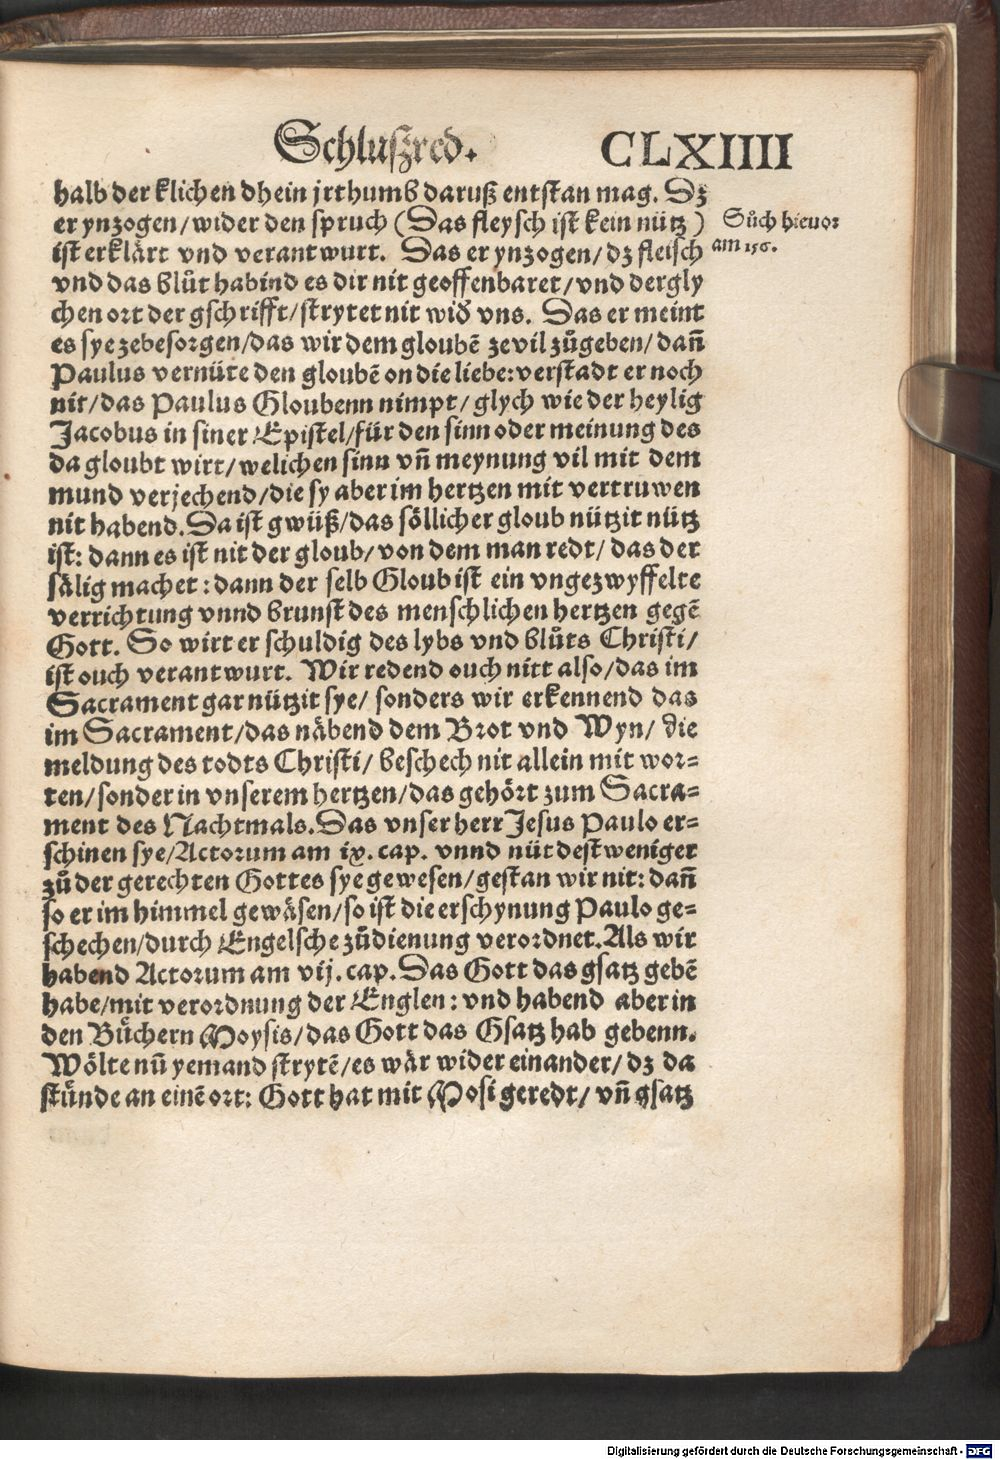 Schluſzred. CLXIIII
halb der klichen dhein jrthumb daruß entſtan mag. Dʒ
er ynzogen/ wider den ſpruch (Das fleyſch iſt kein nütz)
iſt erklärt vnd verantwurt. Das er ynzogen/ dʒ fleiſch
vnd das blůt habind es dir nit geoffenbaret/ vnd dergly
chen ort der gſchrifft/ ſtrytet nit wið vns. Das er meint
es ſye zebeſorgen/ das wir dem gloubē zevil zůgeben/ dañ
Paulus vernüte den gloubē on die liebe: verſtadt er noch
nit/ das Paulus Gloubenn nimpt/ glych wie der heylig
Jacobus in ſiner Epiſtel/ für den ſinn oder meinung des
da gloubt wirt/ welichen ſinn vñ meynung vil mit dem
mund verjechend/ die ſy aber im hertzen mit vertruwen
nit habend. Da iſt gwüß/ das ſöllicher gloub nützit nütz
iſt: dann es iſt nit der gloub/ von dem man redt/ das der
ſälig machet: dann der ſelb Gloub iſt ein vngezwyffelte
verrichtung vnnd brunſt des menſchlichen hertzen gegē
Gott. So wirt er ſchuldig des lybs vnd blůts Chriſti/
iſt ouch verantwurt. Wir redend ouch nitt alſo/ das im
Sacrament gar nützit ſye/ ſonders wir erkennend das
im Sacrament/ das näbend dem Brot vnd Wyn/ die
meldung des todts Chriſti/ beſchech nit allein mit wor=
ten/ ſonder in vnſerem hertzen/ das gehört zum Sacra=
ment des Nachtmals. Das vnſer herr Jeſus Paulo er=
ſchinen ſye/ Actorum am ix. cap. vnnd nüt deſt weniger
zů der gerechten Gottes ſye geweſen/ geſtan wir nit: dañ
ſo er im himmel gewäſen/ ſo iſt die erſchynung Paulo ge=
ſchechen/ durch Engelſche zůdienung verordnet. Als wir
habend Actorum am vij. cap. Das Gott das gſatz gebē
habe/ mit verordnung der Englen: vnd habend aber in
den Bůchern Moyſis/ das Gott das Gſatz hab gebenn.
Wölte nū yemand ſtrytē/ es wär wider einander/ dʒ da
ſtünde an einē ort: Gott hat mit Moſi geredt/ vñ gſatz
Sůch hieuor
am 156.
Digitalisierung gefördert durch die Deutsche Forschungsgemeinschaft - DFG